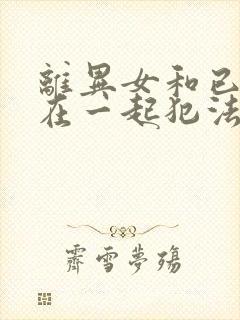 離異女和已
在一起犯法
霽雪夢殤